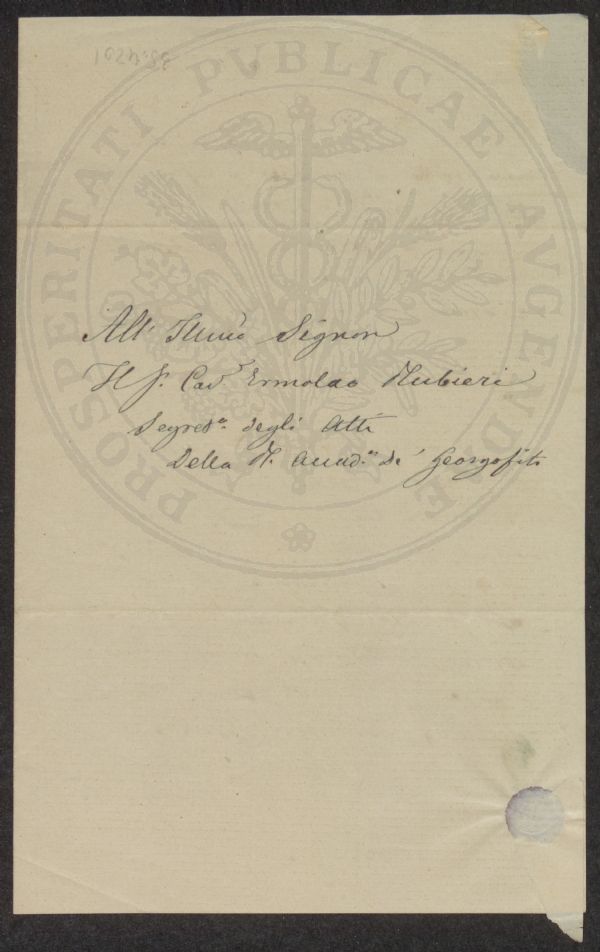 PROSPERITATI PVBLICAE AVGENDAE
All' Illmo Signor
Il Sr. Cavr. Ermolao Rubieri
Segreto. degli Atti
Della R. Accadia. de' Georgofili